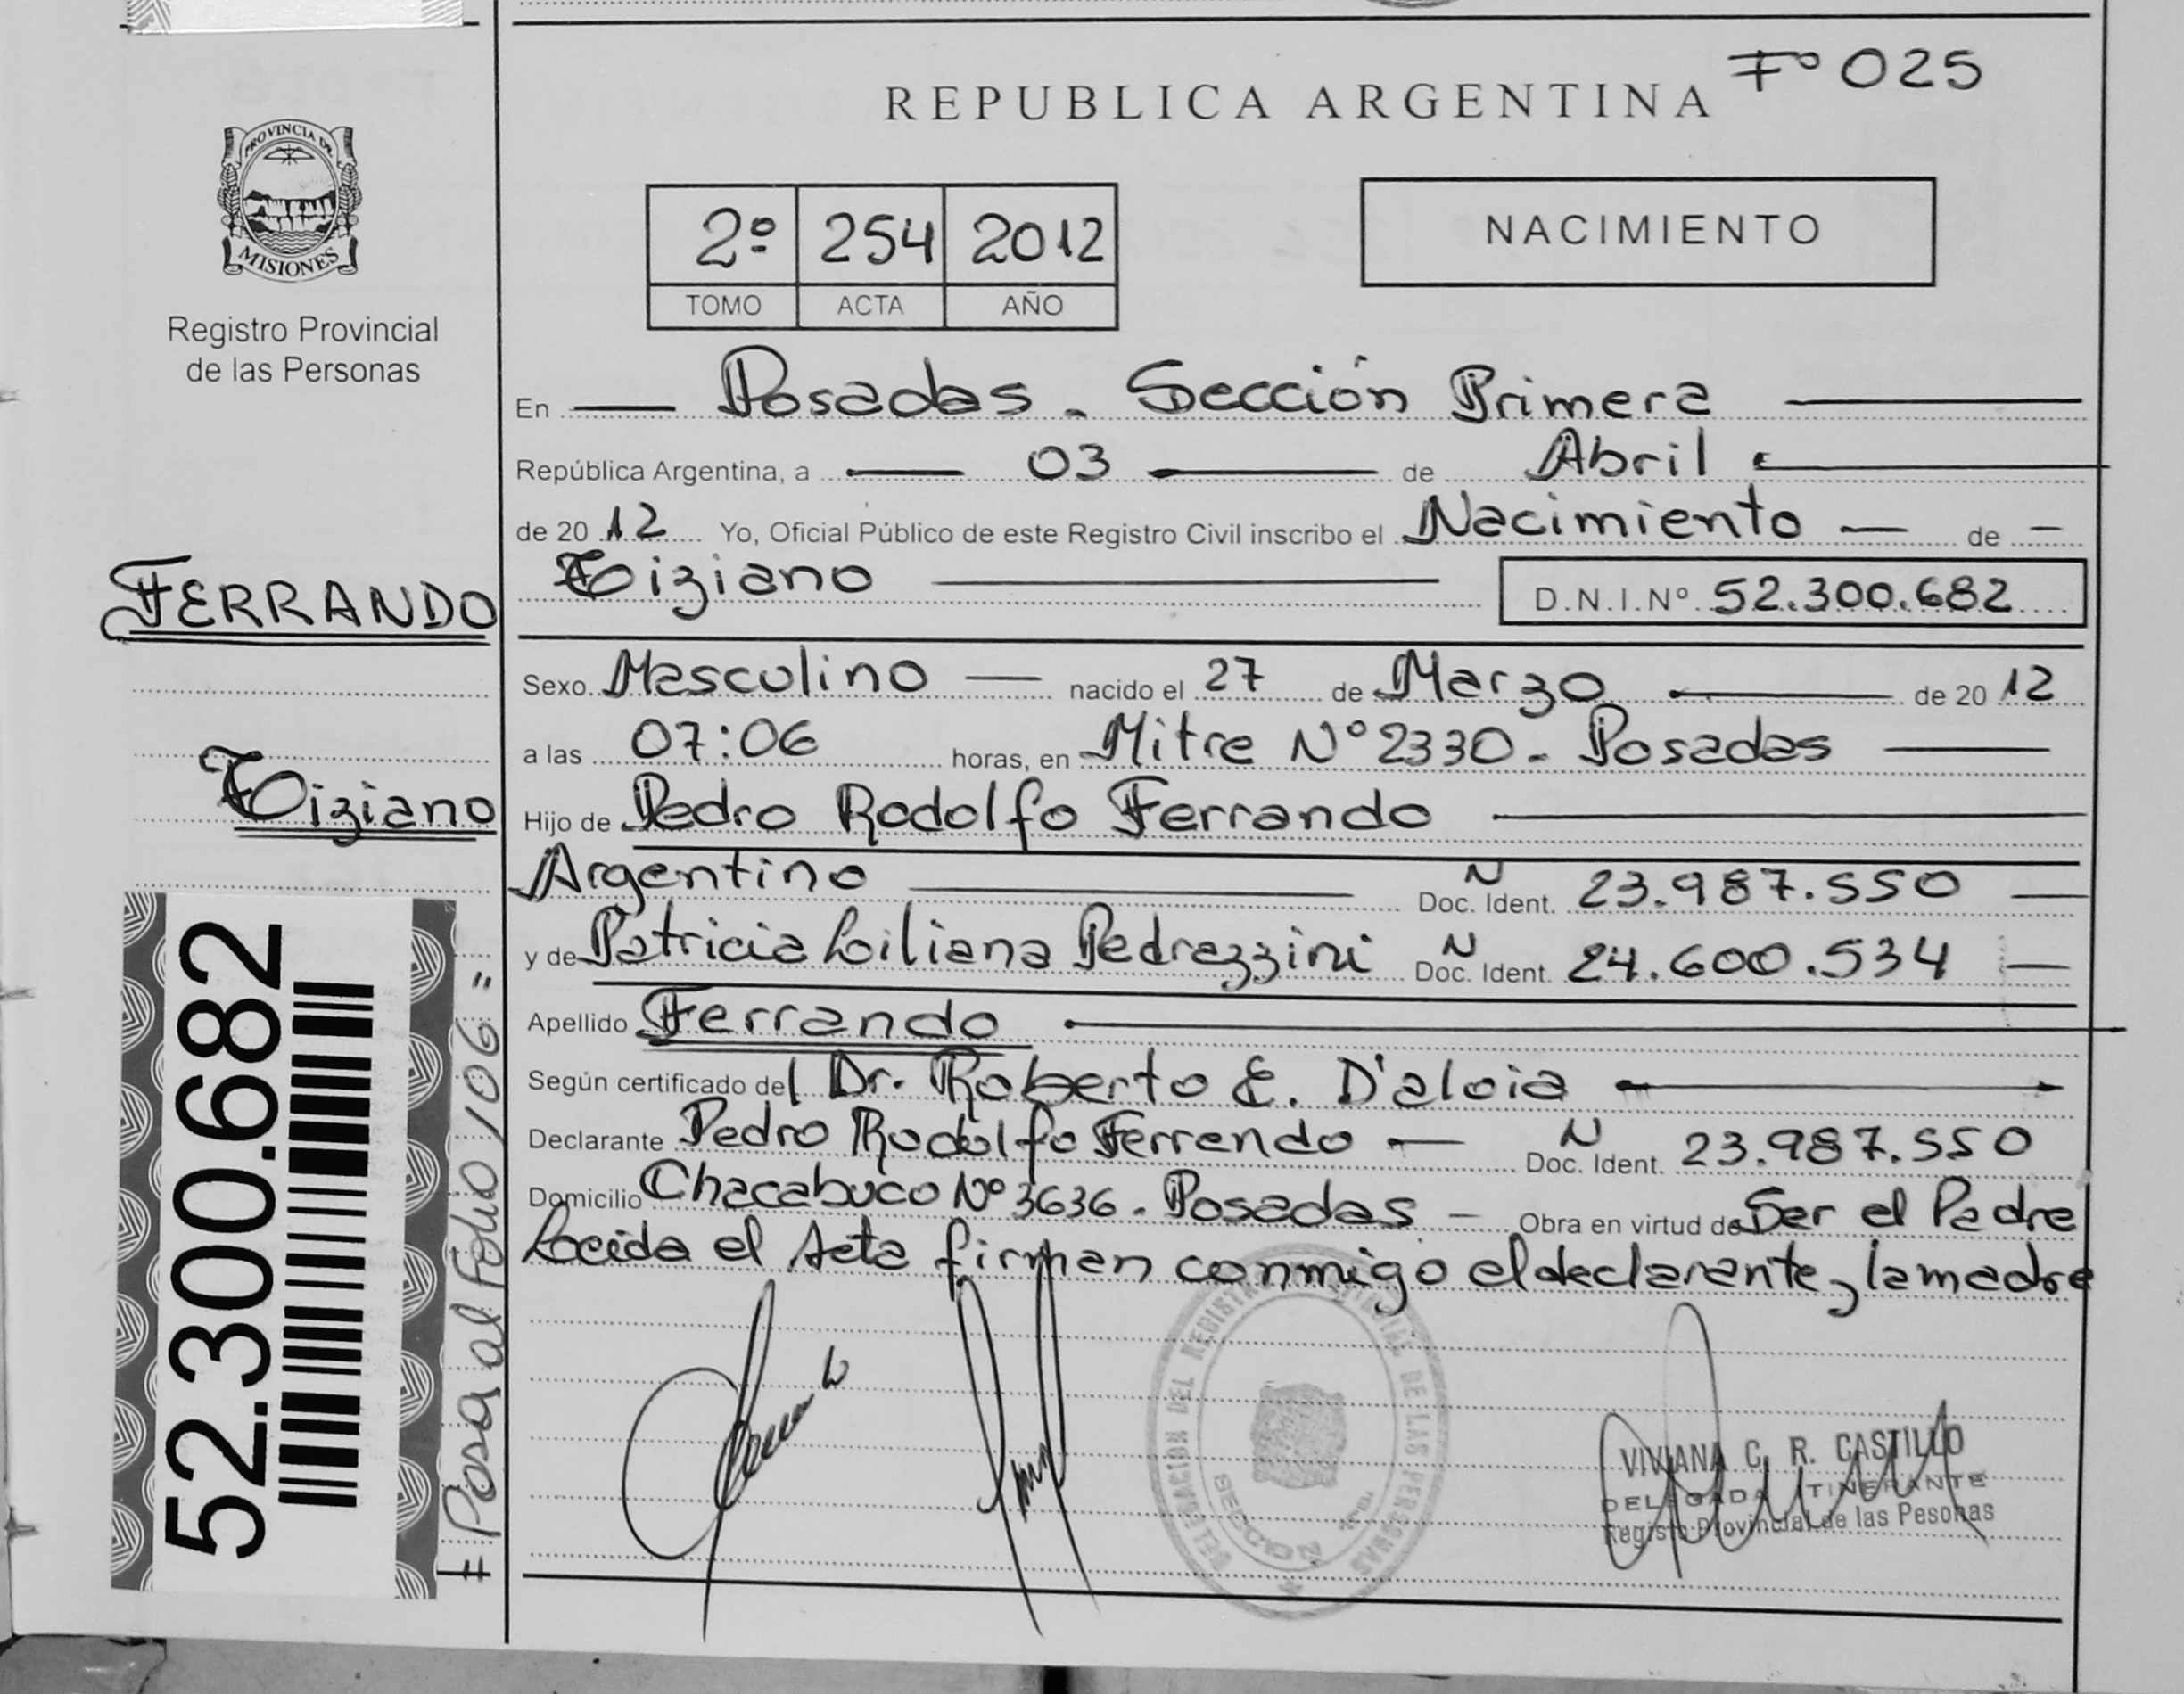 F° 025
REPUBLICA ARGENTINA
PROVINCIA DE
MISIONES
Registro Provincial
de las Personas
2º 254 2012
TOMO ACTA AÑO
NACIMIENTO
En Posadas. Sección Primera
República Argentina, a 03 de Abril
de 2012 Yo, Oficial Público de este Registro Civil inscribo el Nacimiento de
Tiziano D.N.I.Nº 52.300.682
FERRANDO
Tiziano
Sexo Masculino nacido el 27 de Marzo de 2012
a las 07:06 horas, en Mitre N° 2330 - Posadas
Hijo de Pedro Rodolfo Ferrando
Argentino N Doc. Ident. 23.987.550
y de Patricia Liliana Pedrazzini N Doc. Ident. 24.600.534
Apellido Ferrando
Según certificado del Dr. Roberto E. D'aloia
Declarante Pedro Rodolfo Ferrando N Doc. Ident. 23.987.550
Domicilio Chacabuco Nº 3636 - Posadas Obra en virtud de Ser el Padre
Leida el Acta firman conmigo el declarante y la madre
52.300.682
Pasa al Folio 106 "
DELEGACION DEL REGISTRO PROVINCIAL DE LAS PERSONAS
VIVIANA C. R. CASTILLO
DELEGADA ITINERANTE
Registro Provincial de las Pesonas